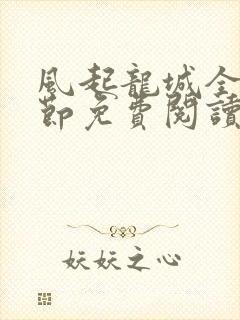 風起龍城全
節免費閱讀
妖妖之心